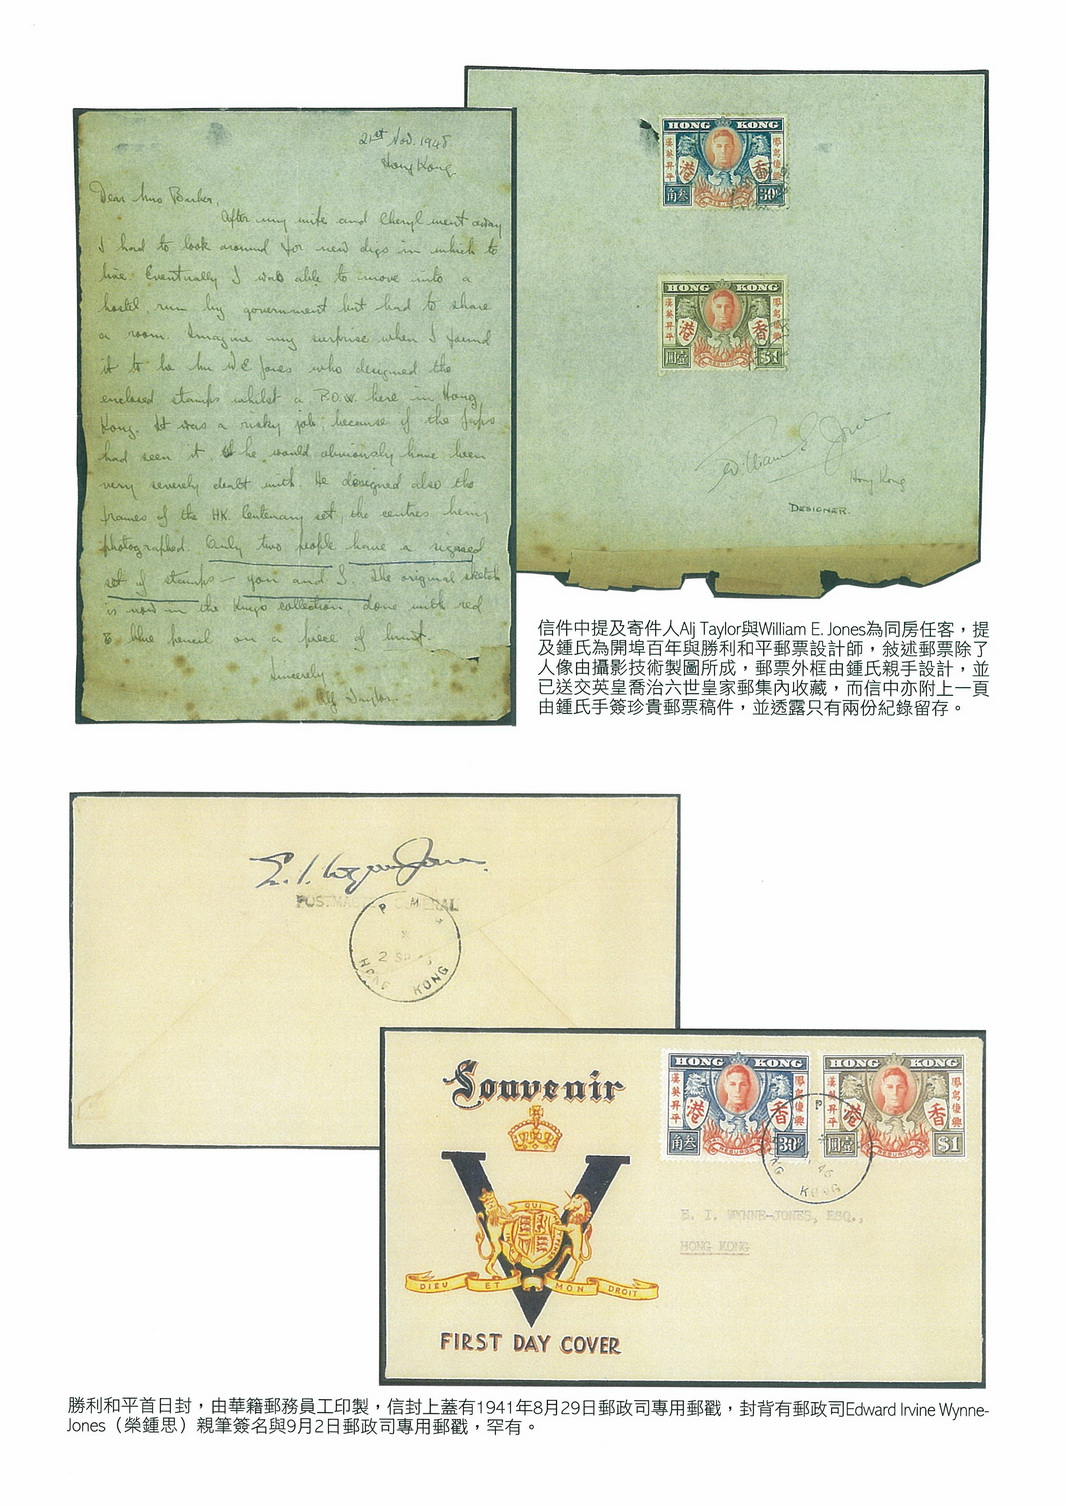 21st Nov. 1948
Hong Kong.
Dear Mrs Barker,
After my wife and Cheryl went away
I had to look around for new digs in which to
live. Eventually I was able to move into a
hostel run by government but had to share
a room. Imagine my surprise when I found
it to be Mr W.E. Jones who designed the
enclosed stamps whilst a P.O.W. here in Hong
Kong. It was a risky job, because if the Japs
had seen it he would obviously have been
very severely dealt with. He designed also the
frames of the HK. Centenary set, the centres being
photographed. Only two people have a signed
set of stamps – you and I. The original sketch
is now in the King's collection, done with red
& blue pencil on a piece of
Sincerely
Alf Taylor.
HONG KONG
漢英昇平
鳳鳥復興
港 香
角叁 30¢
RESURGO
HONG KONG
漢英昇平
鳳鳥復興
港 香
圓壹 $1
RESURGO
William E. Jones
Hong Kong
DESIGNER.
信件中提及寄件人Alj Taylor與William E. Jones為同房任客，提
及鍾氏為開埠百年與勝利和平郵票設計師，敍述郵票除了
人像由攝影技術製圖所成，郵票外框由鍾氏親手設計，並
已送交英皇喬治六世皇家郵集內收藏，而信中亦附上一頁
由鍾氏手簽珍貴郵票稿件，並透露只有兩份紀錄留存。
E. I. Wynne-Jones.
POSTMASTER GENERAL
P M
2 SP
HONG KONG
Souvenir
QUI
DIEU ET MON DROIT
FIRST DAY COVER
HONG KONG
漢英昇平
鳳鳥復興
港 香
角叁 30¢
RESURGO
HONG KONG
漢英昇平
鳳鳥復興
港 香
圓壹 $1
RESURGO
P
46
KONG
E. I. WYNNE-JONES, ESQ.,
HONG KONG
勝利和平首日封，由華籍郵務員工印製，信封上蓋有1941年8月29日郵政司專用郵戳，封背有郵政司Edward Irvine Wynne-
Jones（榮鍾思）親筆簽名與9月2日郵政司專用郵戳，罕有。